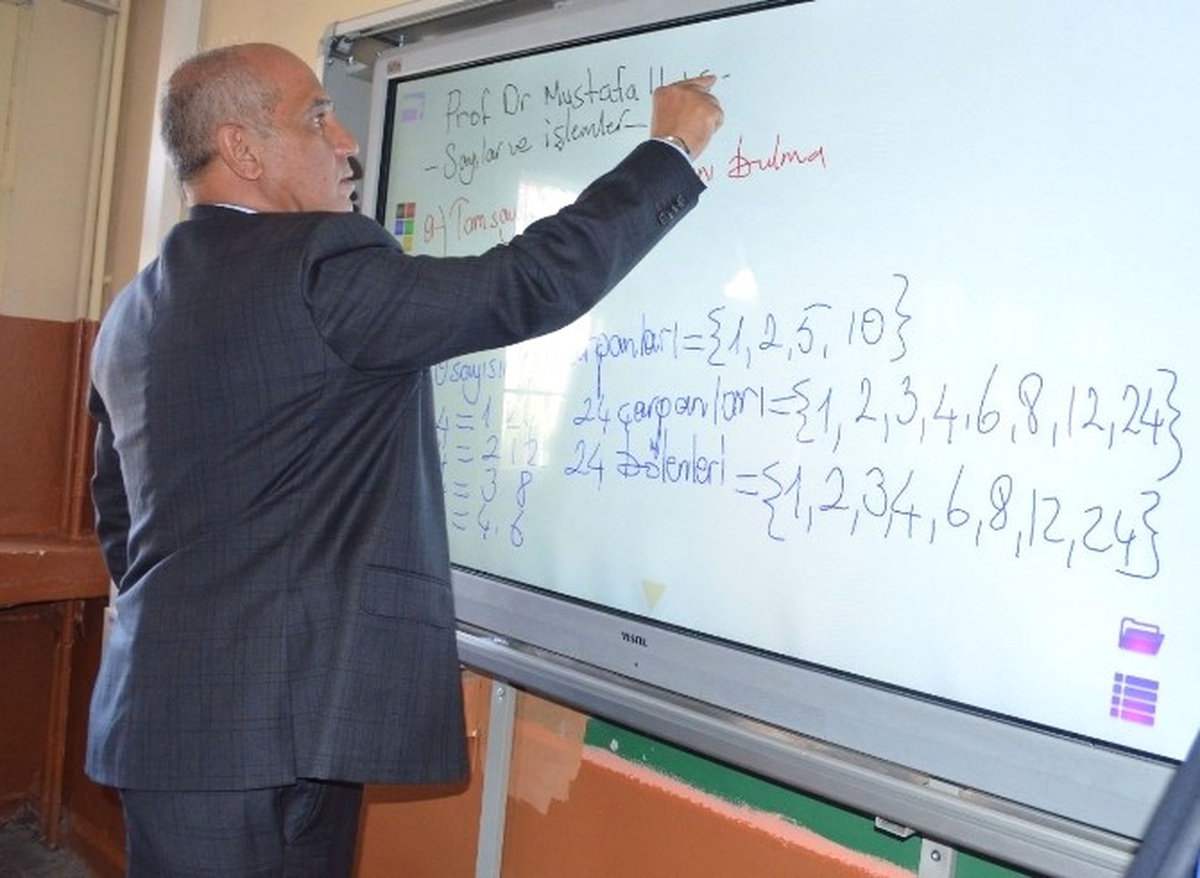 Prof Dr Mustafa
- Sayılar ve işlemler-
a-) Tamsay
bulma
arpanları = {1, 2, 5, 10}
sayısı
4 = 1 24
24 çarpanları = {1, 2, 3, 4, 6, 8, 12, 24}
= 2 12
24 bölenleri = {1, 2, 3 4, 6, 8, 12, 24}
= 3 8
= 4. 6
VESTEL